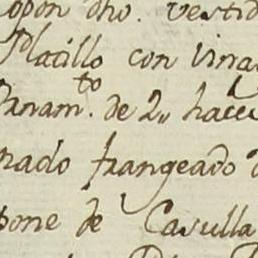 opon dho. vestid
Platillo con vina
Ornam.to de 2,, hace
nado frangeado
pone de Casulla